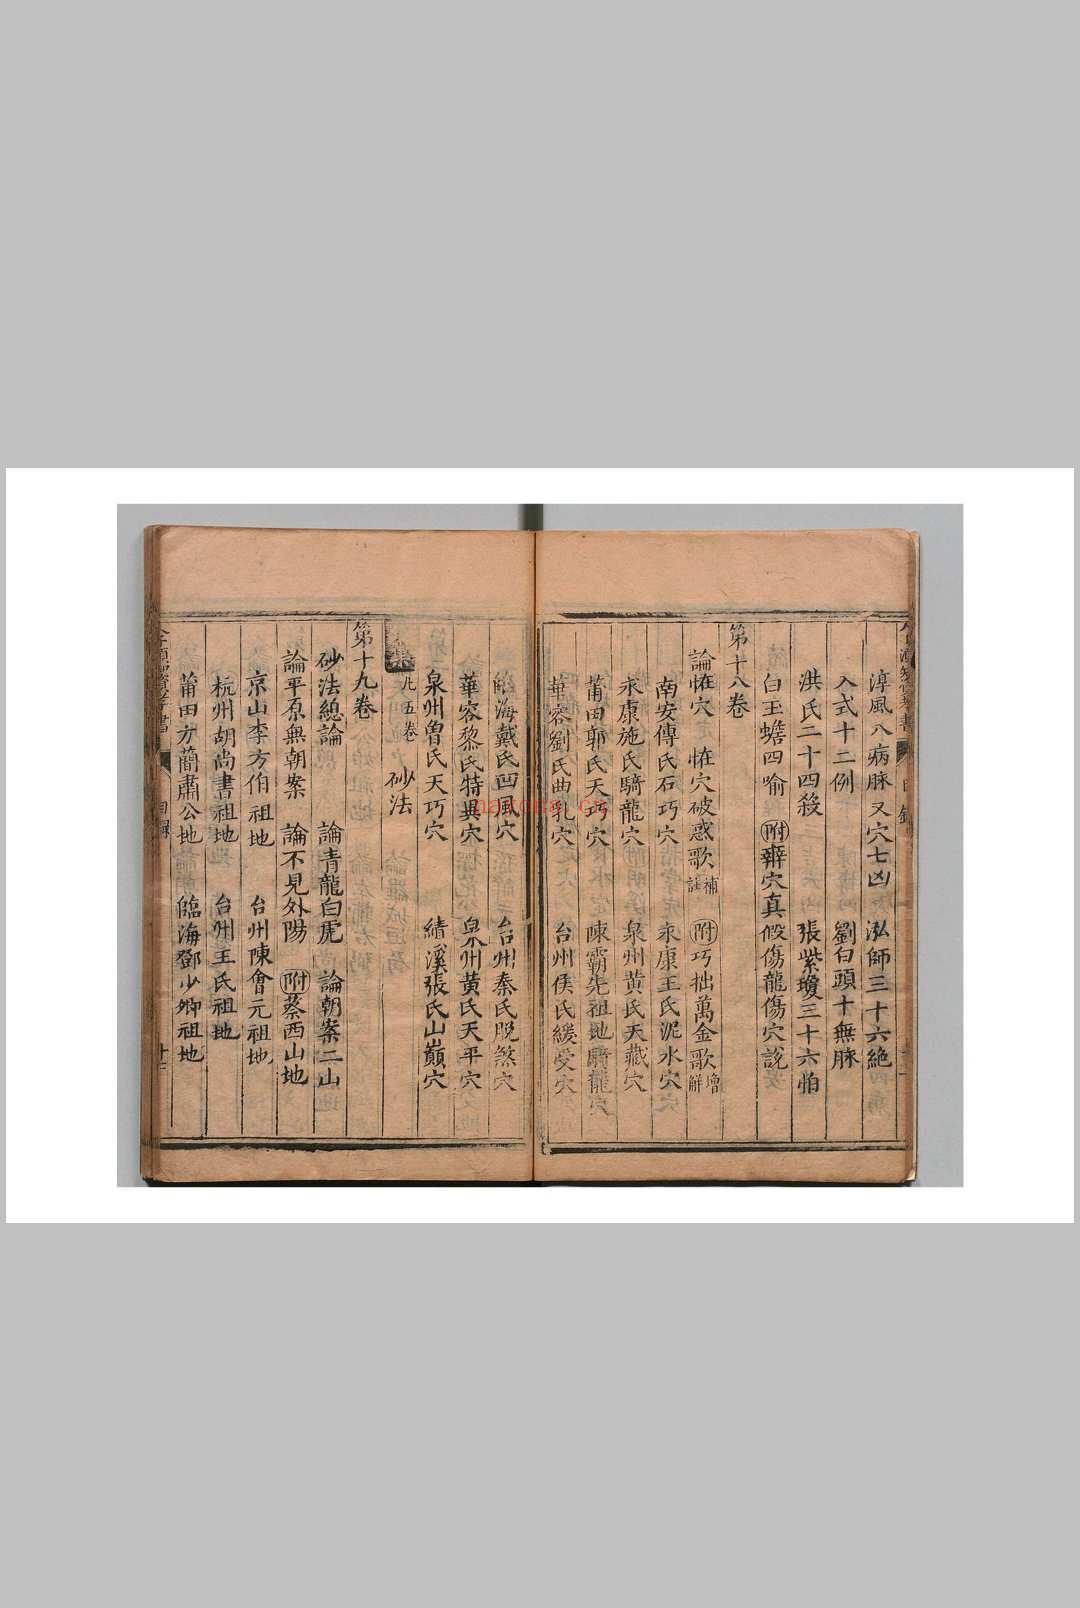 淳風八病脉又穴七凶 泓師三十六絶
入式十二例 劉白頭十無脉
洪氏二十四殺 張紫瓊三十六怕
白玉蟾四喻 附辨穴真假傷龍傷穴說
第十八卷
論怪穴 怪穴破惑歌補註 附巧拙萬金歌增解
南安傅氏石巧穴 永康王氏泥水穴
永康施氏騎龍穴 泉州黄氏天藏穴
莆田郭氏天巧穴 陳霸先祖地騎龍穴
華容劉氏曲乳穴 台州侯氏緩受穴
臨海戴氏凹風穴 台州秦氏脫煞穴
華容黎氏特異穴 泉州黄氏天平穴
泉州曾氏天巧穴 績溪張氏山巔穴
凡五卷 砂法
第十九卷
砂法總論 論青龍白虎 論朝案二山
論平原無朝案 論不見外陽 附蔡西山地
京山李方伯祖地 台州陳會元祖地
杭州胡尚書祖地 台州王氏祖地
莆田方簡肅公地 臨海鄧少卿祖地
目錄
nayona.cn